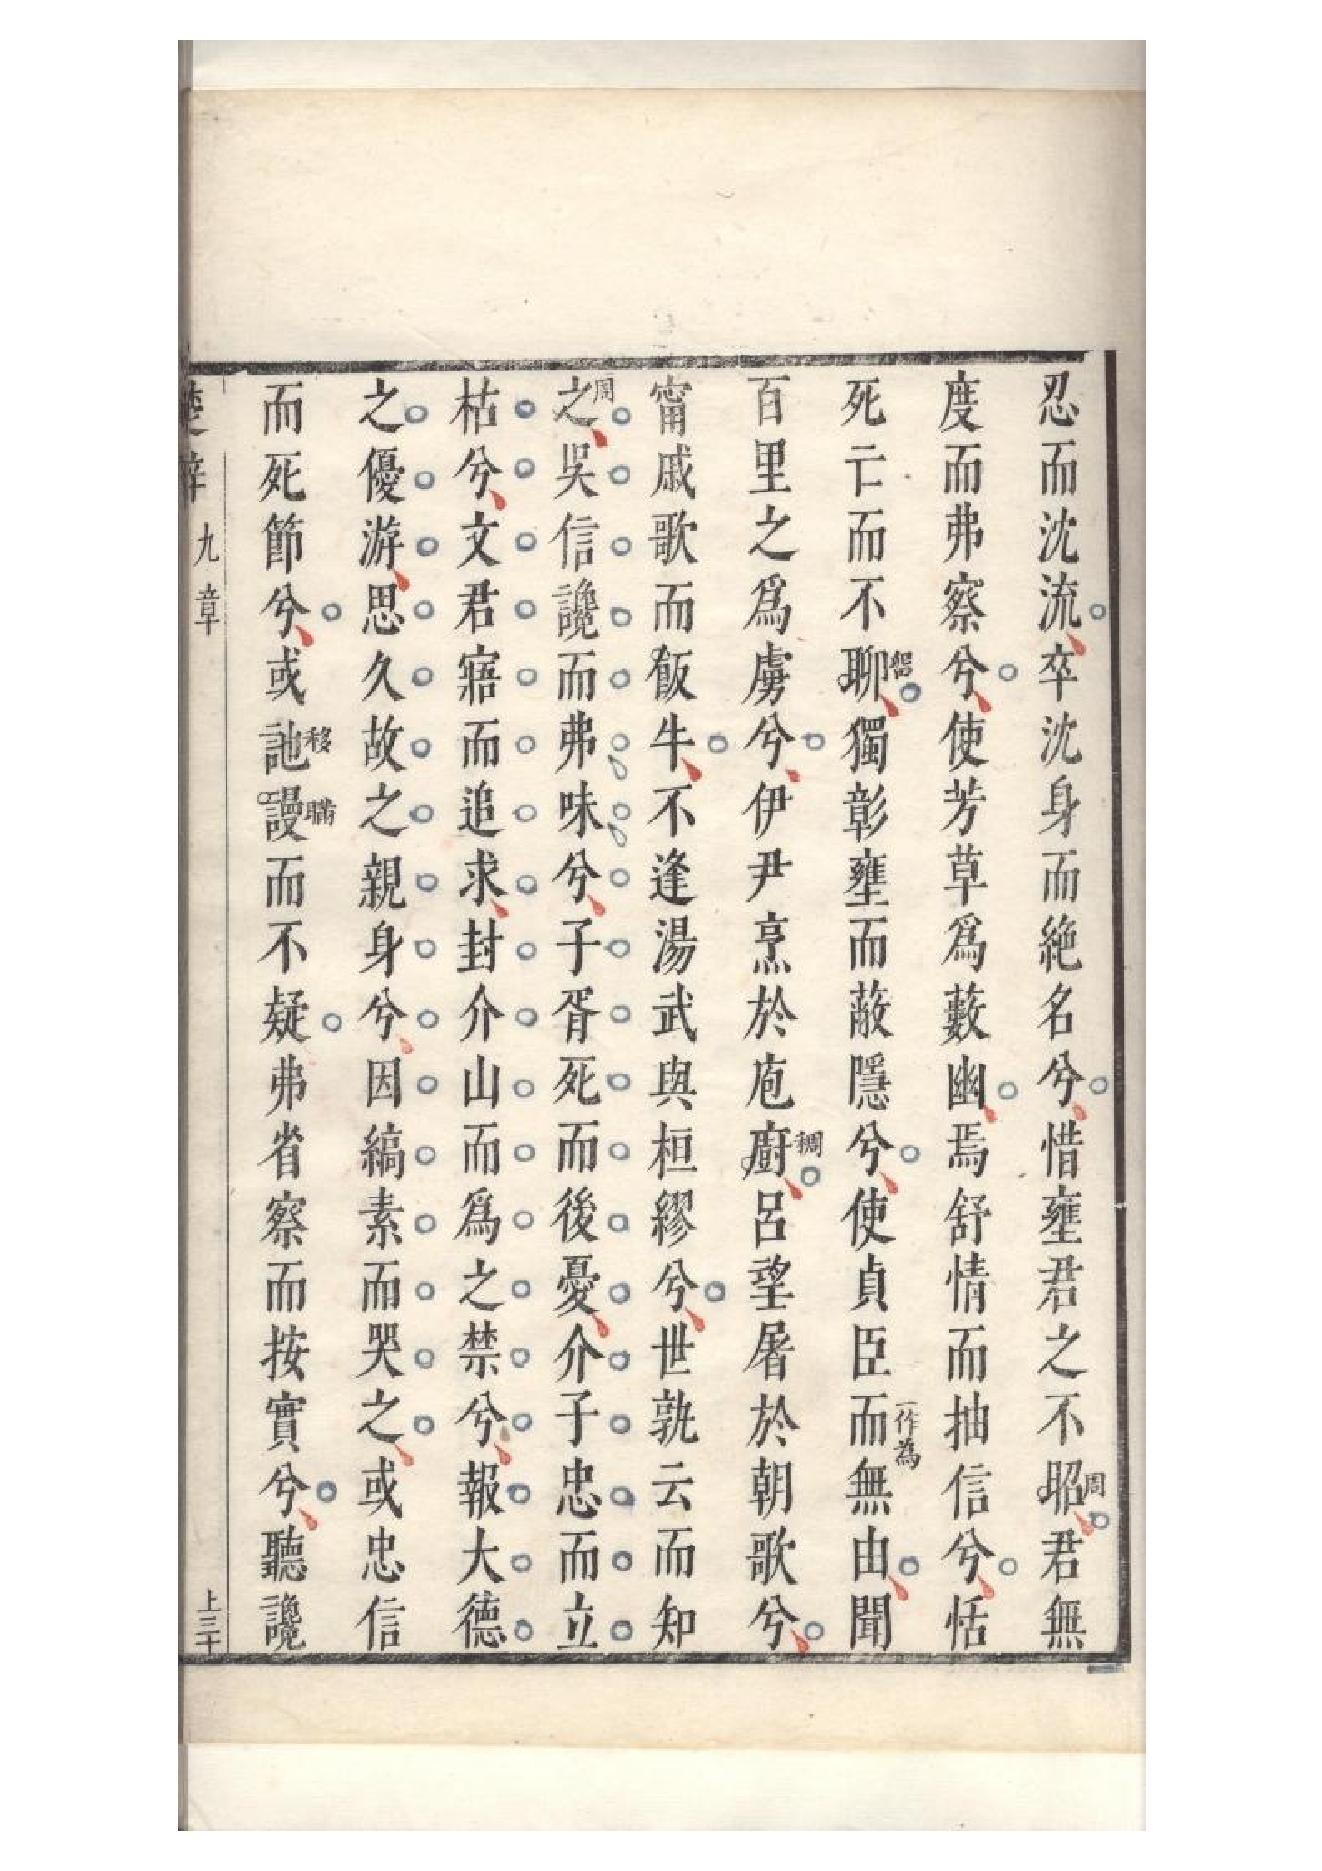 忍而沈流卒沈身而絶名兮惜壅君之不昭周君無
度而弗察兮使芳草爲藪幽焉舒情而抽信兮恬
死亡而不聊獨彰壅而蔽隱兮使貞臣而一作為無由聞
百里之爲虜兮伊尹烹於庖廚稠呂望屠於朝歌兮
甯戚歌而飯牛不逢湯武與桓繆兮世孰云而知
之周吳信讒而弗味兮子胥死而後憂介子忠而立
枯兮文君寤而追求封介山而爲之禁兮報大德
之優游思久故之親身兮因縞素而哭之或忠信
而死節兮或訑移謾瞞而不疑弗省察而按實兮聽讒
楚辭 九章 上三十